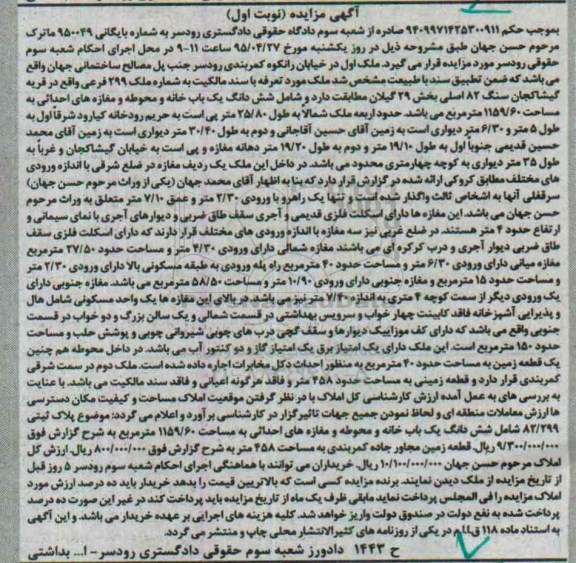 آگهی مزایده (نوبت اول)
بموجب حکم ۹۴۰۹۹۷۱۴۲۵۳۰۰۹۱۱ صادره از شعبه سوم دادگاه حقوقی دادگستری رودسر به شماره بایگانی ۹۵۰۰۴۹ ماترک
مرحوم حسن جهان طبق مشروحه ذیل در روز یکشنبه مورخ ۹۵/۰۴/۲۷ ساعت ۱۱-۹ در محل اجرای احکام شعبه سوم
حقوقی رودسر مورد مزایده قرار می گیرد. ملک اول در خیابان رانکوه کمربندی رودسر جنب پل مصالح ساختمانی جهان واقع
می باشد که ضمن تطبیق سند با طبیعت مشخص شد ملک مورد تعرفه با سند مالکیت به شماره ملک ۲۹۹ فرعی واقع در قریه
گیشاکجان سنگ ۸۲ اصلی بخش ۲۹ گیلان مطابقت دارد و شامل شش دانگ یک باب خانه و محوطه و مغازه های احداثی به
مساحت ۱۱۵۹/۶۰ مترمربع می باشد. حدود اربعه ملک شمالاً به طول ۲۵/۸۰ متر پی است به حریم رودخانه کیارود شرقا اول به
طول ۵ متر و ۶/۳۰ متر دیواری است به زمین آقای حسین آقاجانی و دوم به طول ۳۰/۴۰ متر دیواری است به زمین آقای محمد
حسین قدیمی جنوبا اول به طول ۱۹/۱۰ متر و دوم به طول ۱۹/۲۰ متر دهانه مغازه و پی است به خیابان گیشاکجان و غرباً به
طول ۳۵ متر دیواری به کوچه چهارمتری محدود می باشد. در داخل این ملک یک ردیف مغازه در ضلع شرقی با اندازه ورودی
های مختلف مطابق کروکی ارائه شده در گزارش قرار دارد که بنا به اظهار آقای محمد جهان (یکی از وراث مرحوم حسن جهان)
سرقفلی آنها به اشخاص ثالث واگذار شده است و تنها یک راهرو با ورودی ۲/۳۰ متر و عمق ۷/۱۰ متر متعلق به وراث مرحوم
حسن جهان می باشد. این مغازه ها دارای اسکلت فلزی قدیمی و آجری سقف طاق ضربی و دیوارهای آجری با نمای سیمانی و
ارتفاع حدود ۴ متر هستند. در ضلع غربی نیز سه مغازه با اندازه ورودی های مختلف قرار دارند که دارای اسکلت فلزی سقف
طاق ضربی دیوار آجری و درب کرکره ای می باشند مغازه شمالی دارای ورودی ۴/۳۰ متر و مساحت حدود ۲۷/۵۰ مترمربع
مغازه میانی دارای ورودی ۶/۳۰ متر و مساحت حدود ۴۰ مترمربع راه پله ورودی به طبقه مسکونی بالا دارای ورودی ۲/۳۰ متر
و مساحت حدود ۱۵ مترمربع و مغازه جنوبی دارای ورودی ۱۰/۹۰ متر و مساحت ۵۸/۵۰ مترمربع می باشد. مغازه جنوبی دارای
یک ورودی دیگر از سمت کوچه ۴ متری به اندازه ۷/۲۰ متر نیز می باشد. در بالای این مغازه ها یک واحد مسکونی شامل هال
و پذیرایی آشپزخانه فاقد کابینت چهار خواب و سرویس بهداشتی در قسمت شمالی و یک سالن بزرگ و دو خواب در قسمت
جنوبی واقع می باشد که دارای کف موزاییک دیوارها و سقف گچی درب های چوبی شیروانی چوبی و پوشش حلب و مساحت
حدود ۱۵۰ مترمربع است. این ملک دارای یک امتیاز برق یک امتیاز گاز و دو کنتور آب می باشد. در داخل محوطه هم چنین
یک قطعه زمین به مساحت حدود ۴۰ مترمربع به منظور احداث دکل مخابرات اجاره داده شده است. ملک دوم در سمت شرقی
کمربندی قرار دارد و قطعه زمینی به مساحت حدود ۴۵۸ متر و فاقد هرگونه اعیانی و فاقد سند مالکیت می باشد. با عنایت
به بررسی های به عمل آمده ارزش کارشناسی کل املاک با در نظر گرفتن موقعیت املاک مساحت و کیفیت مکان دسترسی
ها ارزش معاملات منطقه ای و لحاظ نمودن جمیع جهات تاثیرگزار در کارشناسی برآورد و اعلام می گردد: موضوع پلاک ثبتی
۸۲/۲۹۹ شامل شش دانگ یک باب خانه و محوطه و مغازه های احداثی به مساحت ۱۱۵۹/۶۰ مترمربع به شرح گزارش فوق
۹/۳۰۰/۰۰۰/۰۰۰ ریال. قطعه زمین مجاور جاده کمربندی به مساحت ۴۵۸ متر به شرح گزارش فوق ۸۰۰/۰۰۰/۰۰۰ ریال. ارزش کل
املاک مرحوم حسن جهان ۱۰/۱۰۰/۰۰۰/۰۰۰ ریال. خریداران می توانند با هماهنگی اجرای احکام شعبه سوم رودسر ۵ روز قبل
از تاریخ مزایده از ملک دیدن نمایند. برنده مزایده کسی است که بالاترین قیمت را بدهد خریدار باید ده درصد ارزش مورد
املاک مزایده را فی المجلس پرداخت نماید مابقی ظرف یک ماه از تاریخ مزایده باید پرداخت کند در غیر این صورت ده درصد
پرداخت شده به نفع دولت در صندوق دولت واریز خواهد شد. کلیه هزینه های اجرایی بر عهده خریدار می باشد. و این آگهی
به استناد ماده ۱۱۸ ق.ا.م در یکی از روزنامه های کثیرالانتشار محلی چاپ و منتشر می گردد.
ح ۱۴۴۳ دادورز شعبه سوم حقوقی دادگستری رودسر - ا... بداشتی